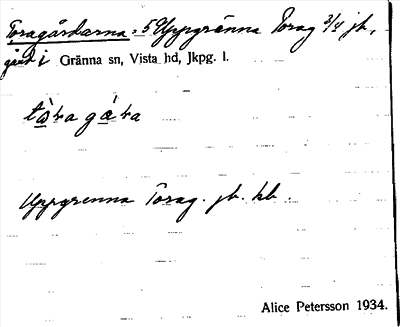 Toragårdarna = 5 Uppgränna Torag 3/4 jb,
gård i Gränna sn, Vista hd, Jkpg. l.
tòra gára
Uppgrenna Torag. jb. kb.
Alice Petersson 1934.